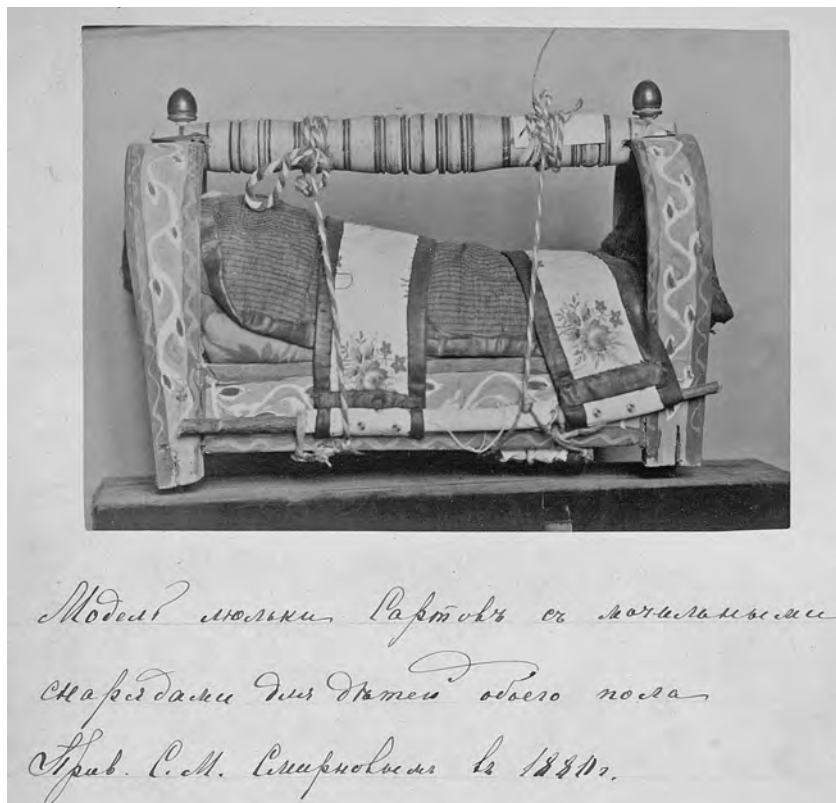 Модель люльки Сартовъ съ мочильными
снарядами для дѣтей обоего пола
Прив. С. М. Смирновымъ въ г.